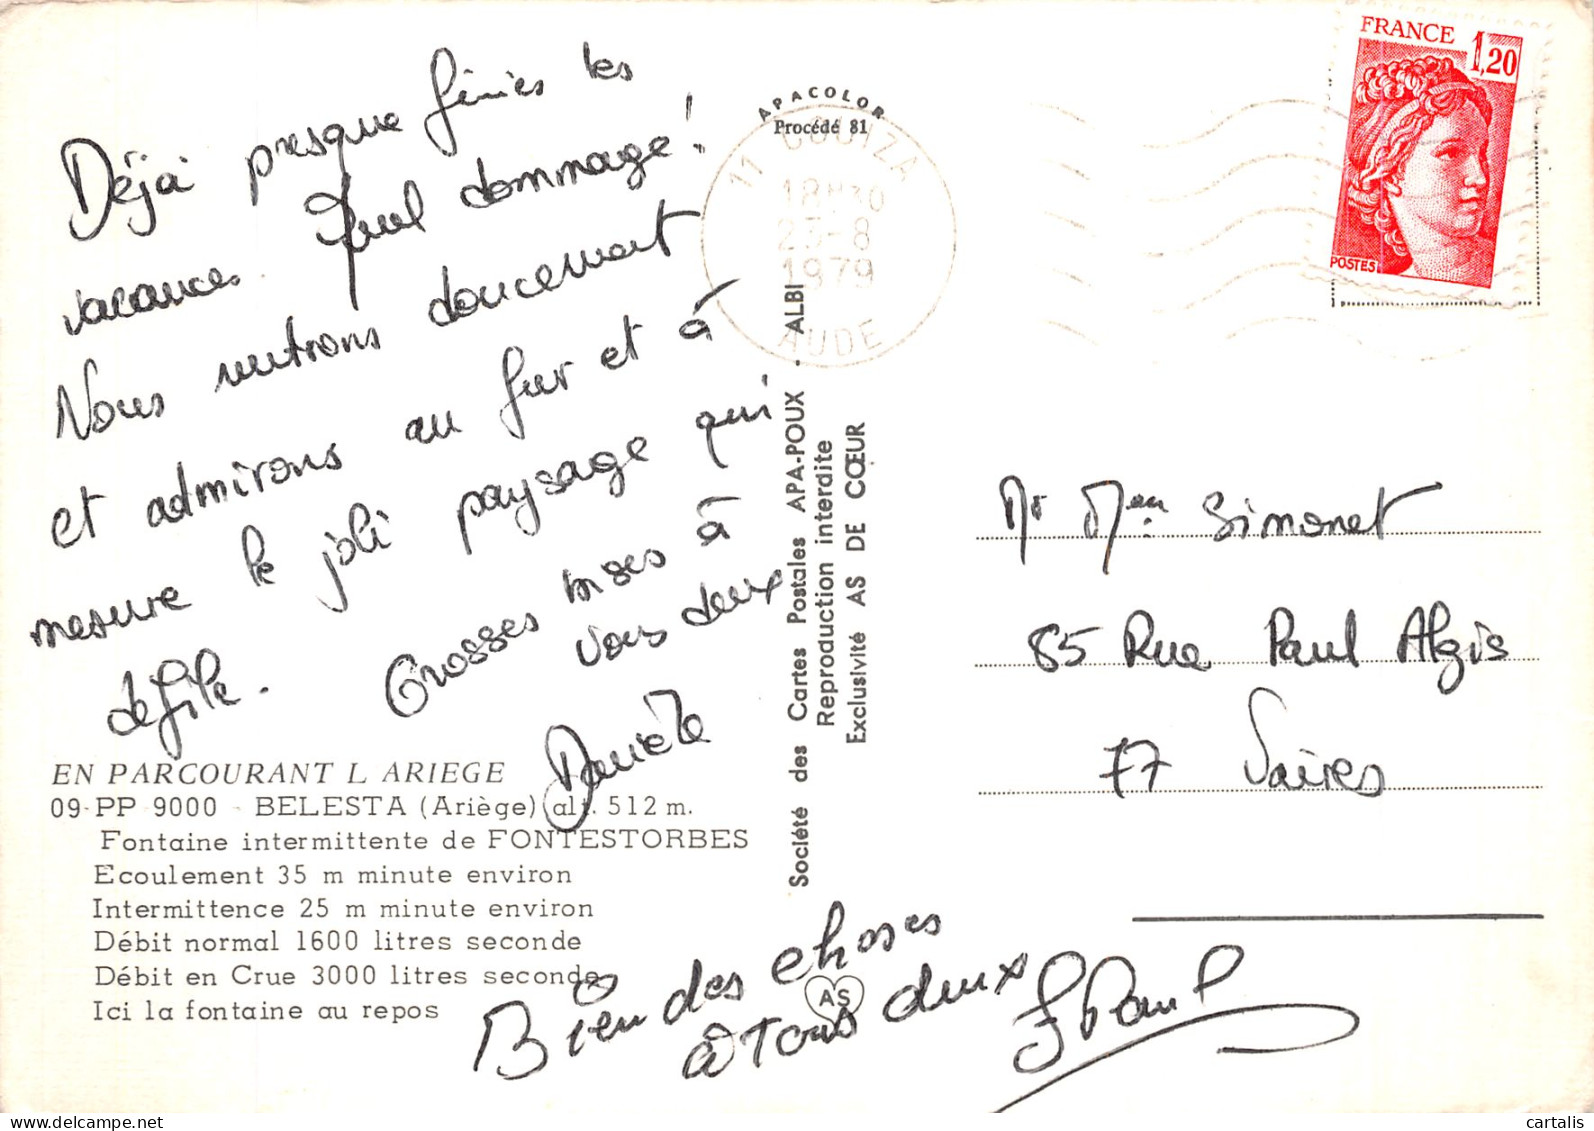 Déjà presque finies les
vacances. Quel dommage!
Nous rentrons doucement
et admirons au fur et à
mesure le joli paysage qui
défile. Grosses bises à
vous deux
Danièle
EN PARCOURANT L ARIEGE
09-PP 9000 - BELESTA (Ariège) alt. 512 m.
Fontaine intermittente de FONTESTORBES
Ecoulement 35 m minute environ
Intermittence 25 m minute environ
Débit normal 1600 litres seconde
Débit en Crue 3000 litres seconde
Ici la fontaine au repos
Bien des choses
à tous deux
APACOLOR
Procédé 81
11 COUIZA
18H30
-8
1979
AUDE
Société des Cartes Postales APA-POUX - ALBI
Reproduction interdite
Exclusivité AS DE CŒUR
AS
FRANCE 1,20
POSTES
Mr Mme Simonet
85 Rue Paul Algis
77 Vaires
cartalis